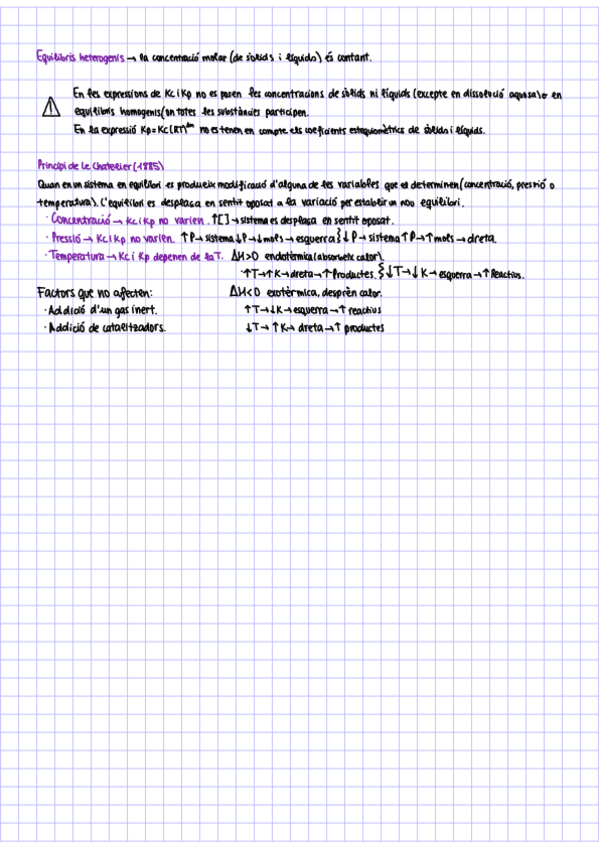 Equilibris heterogenis → la concentració molar (de sòlids i líquids) és contant.
En les expressions de Kc i Kp no es posen les concentracions de sòlids ni líquids (excepte en dissolució aquosa) o en
equilibris homogenis (on totes les substàncies participen.
En la expressió Kp = Kc(RT)^Δn no es tenen en compte els coeficients estequiomètrics de sòlids i líquids.
Principi de Le Chatelier (1885)
Quan en un sistema en equilibri es produeix modificació d'alguna de les variables que el determinen (concentració, pressió o
temperatura). L'equilibri es desplaça en sentit oposat a la variació per establir un nou equilibri.
· Concentració → Kc i Kp no varien. ↑[ ] → sistema es desplaça en sentit oposat.
· Pressió → Kc i Kp no varien. ↑P → sistema ↓P → ↓mols → esquerra } ↓P → sistema ↑P → ↑mols → dreta.
· Temperatura → Kc i Kp depenen de la T. ΔH>0 endotèrmica (absorbeix calor).
·↑T→↑K→dreta→↑Productes. { ↓T→↓K→esquerra→↑Reactius.
Factors que no afecten: ΔH<0 exotèrmica, desprèn calor.
· Addició d'un gas inert. ↑T→↓K→esquerra→↑reactius
· Addició de catalitzadors. ↓T→↑K→dreta→↑productes